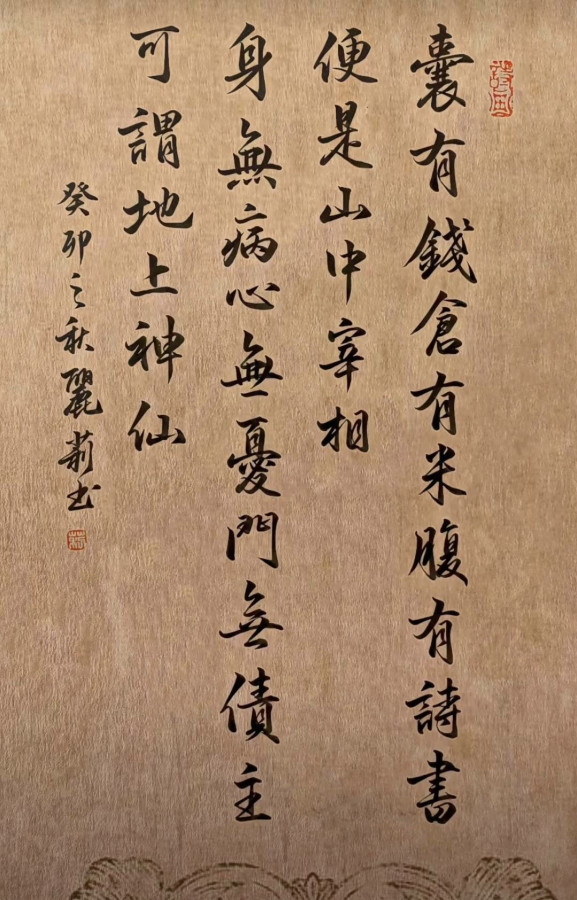 囊有錢倉有米腹有詩書
便是山中宰相
身無病心無憂門無債主
可謂地上神仙
癸卯之秋麗莉書